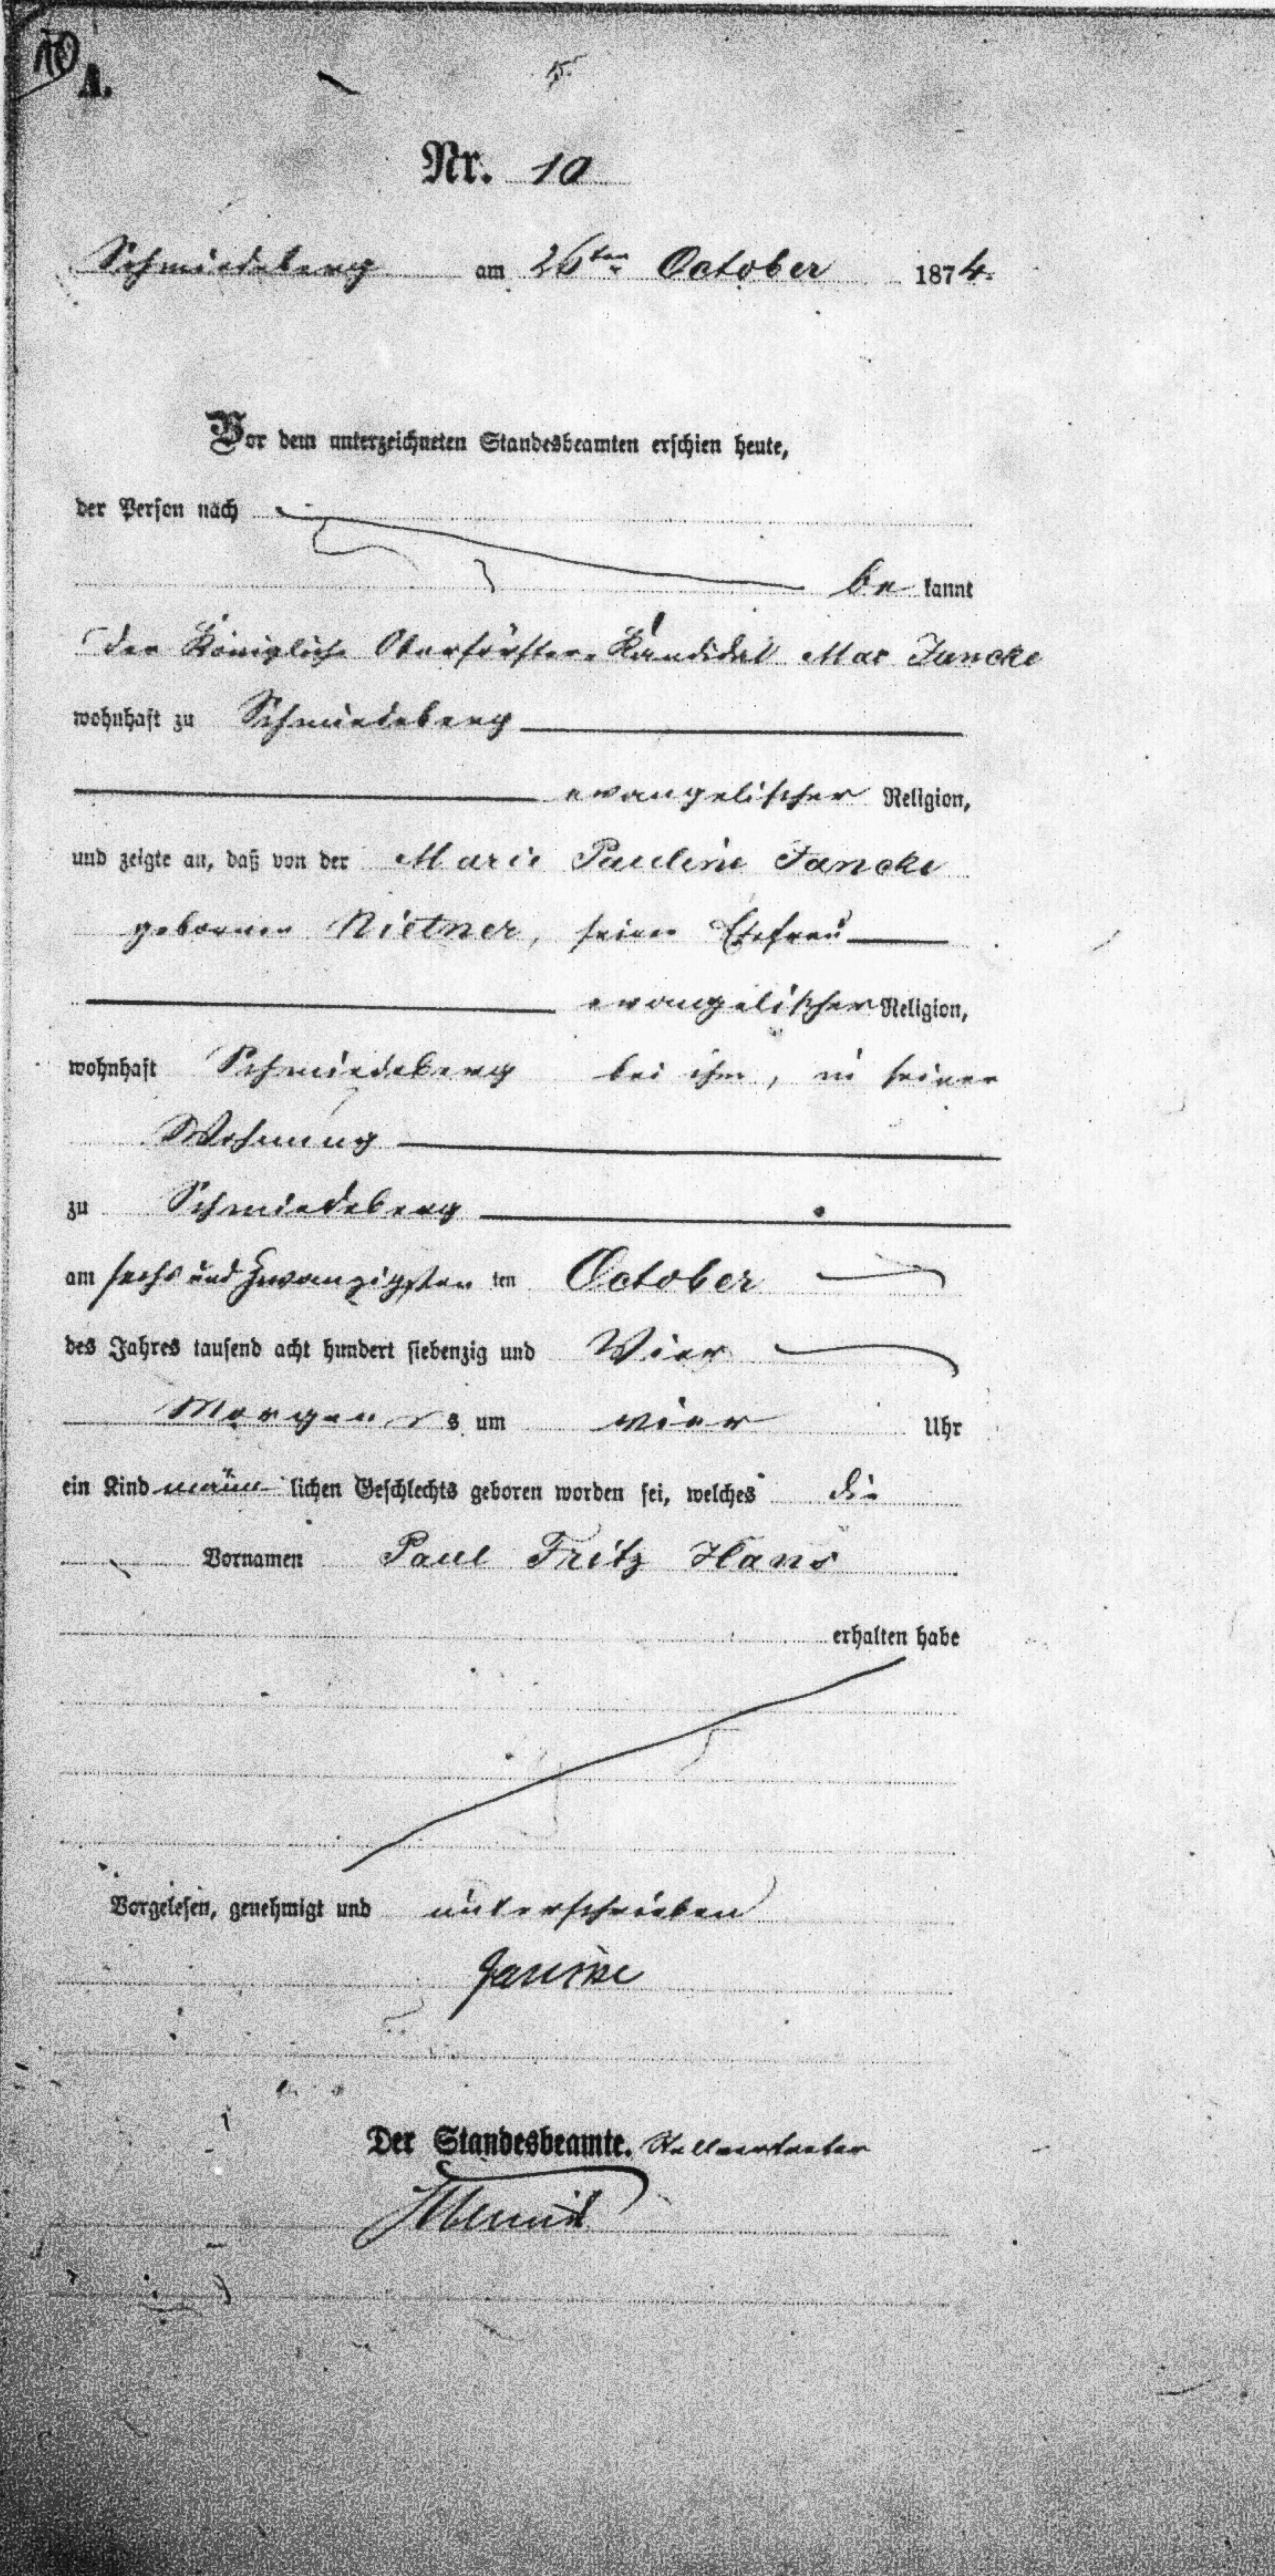 A.
Nr. 10
Schmiedeberg am 26ten October 1874.
Vor dem unterzeichneten Standesbeamten erschien heute,
der Person nach
bekannt
der Königliche Oberförster-Kandidat Max Jancke
wohnhaft zu Schmiedeberg
evangelischer Religion,
und zeigte an, daß von der Marie Pauline Jancke
geborenen Nietner, seiner Ehefrau
evangelischer Religion,
wohnhaft Schmiedeberg bei ihm, in seiner
Wohnung
zu Schmiedeberg
am sechs und zwanzigsten ten October
des Jahres tausend acht hundert siebenzig und Vier
Morgens um vier Uhr
ein Kind männlichen Geschlechts geboren worden sei, welches die
Vornamen Paul Fritz Hans
erhalten habe
Vorgelesen, genehmigt und unterschrieben
Jancke
Der Standesbeamte. Stellvertreter